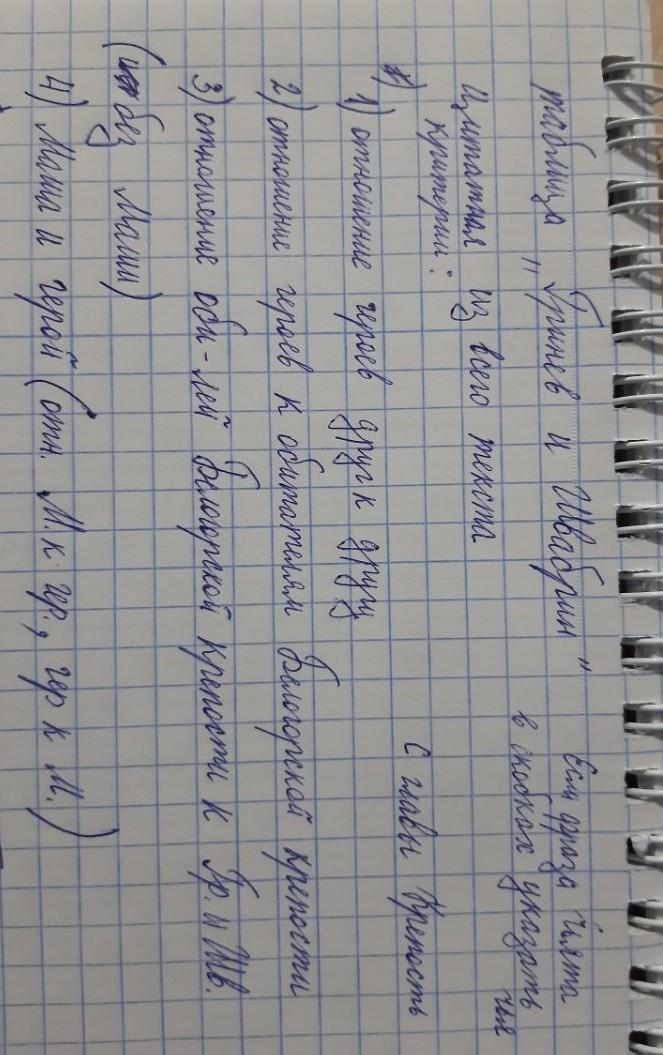 таблица „Гринев и Швабрин"
Если фраза чья-то
в скобках указать
чья
Цитатная из всего текста
критерии:
С главы Крепость
1) отношение героев друг к другу
2) отношение героев к обитателям Белогорской крепости
3) отношение оби-лей Белогорской крепости к Гр. и Шв.
(без Маши)
4) Маша и герой (отн. М. к гер., гер к М.)